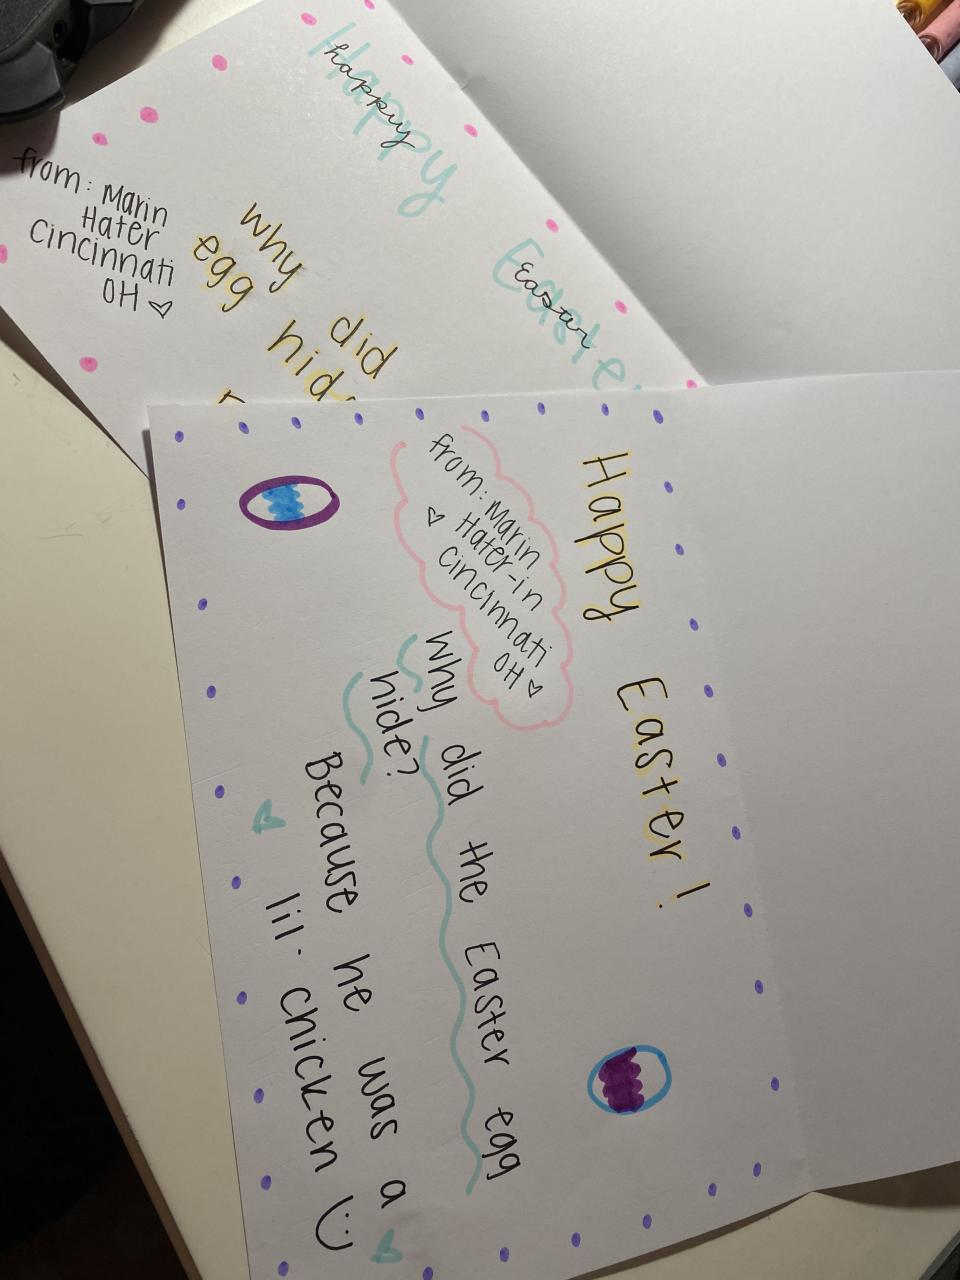 Happy
happy
Easter
Easter
from: Marin
Hater
Cincinnati
OH
why did
egg hid
Happy Easter!
from: Marin
Hater-in
Cincinnati
OH
why did the Easter egg
hide?
Because he was a
lil. chicken